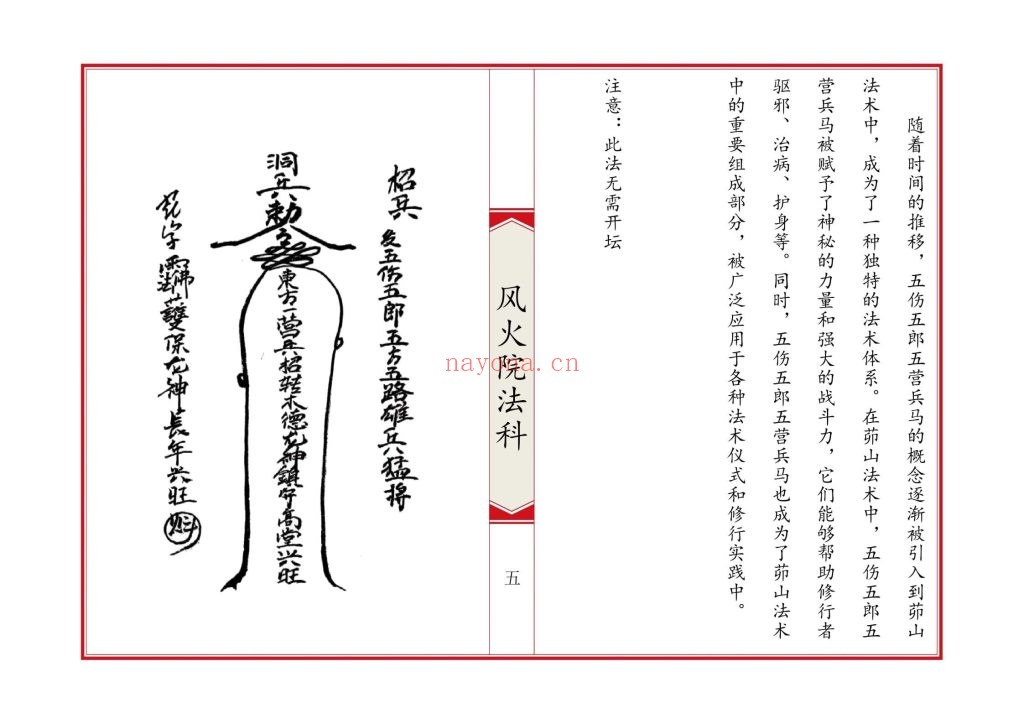 随着时间的推移，五伤五郎五营兵马的概念逐渐被引入到茆山
法术中，成为了一种独特的法术体系。在茆山法术中，五伤五郎五
营兵马被赋予了神秘的力量和强大的战斗力，它们能够帮助修行者
驱邪、治病、护身等。同时，五伤五郎五营兵马也成为了茆山法术
中的重要组成部分，被广泛应用于各种法术仪式和修行实践中。
注意：此法无需开坛
风火院法科
nayona.cn
五
招兵
五伤五郎五方五路雄兵猛将
洞兵敕令
東方一营兵招转木德龙神鎮守高堂兴旺
保龙神長年兴旺
魁